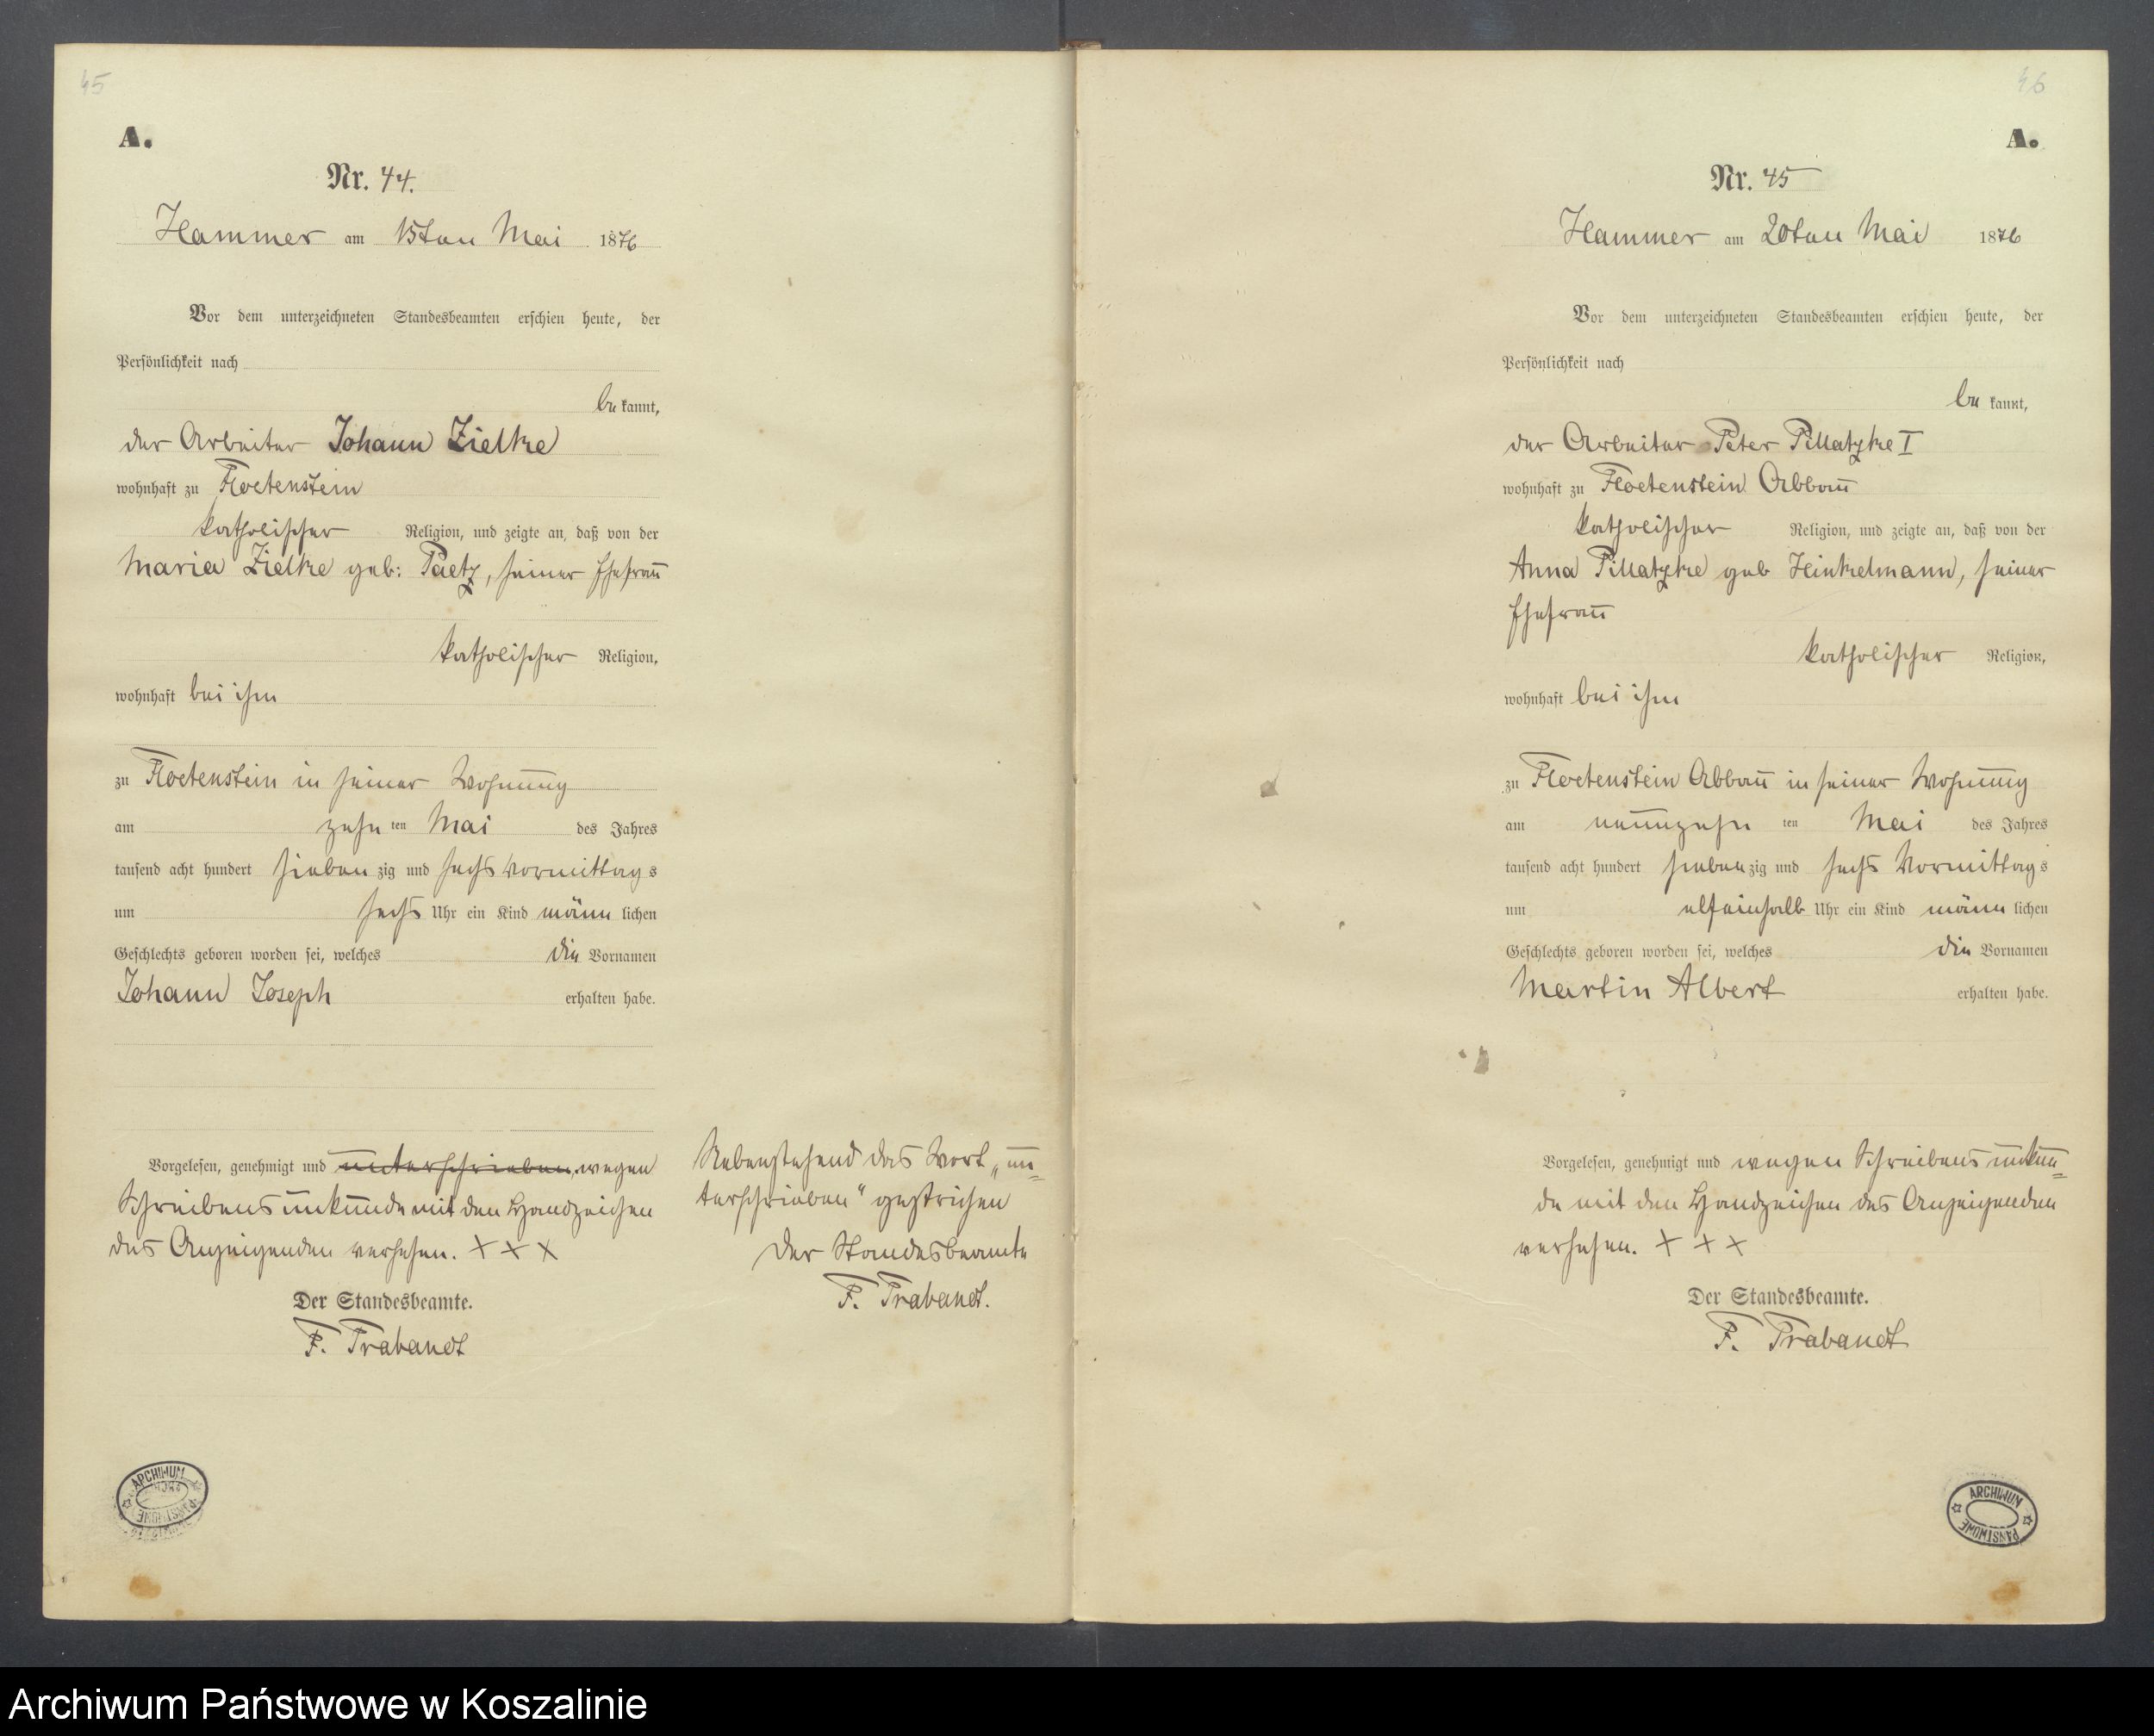 45
A.
Nr. 44.
Hammer am 15ten Mai 1876
Vor dem unterzeichneten Standesbeamten erschien heute, der
Persönlichkeit nach
be kannt,
der Arbeiter Johann Zielke
wohnhaft zu Floetenstein
katholischer Religion, und zeigte an, daß von der
Maria Zielke geb: Paetz, seiner Ehefrau
katholischer Religion,
wohnhaft bei ihm
zu Floetenstein in seiner Wohnung
am zehn ten Mai des Jahres
tausend acht hundert sieben zig und sechs Vormittag s
um sechs Uhr ein Kind männ lichen
Geschlechts geboren worden sei, welches die Vornamen
Johann Joseph erhalten habe.
Vorgelesen, genehmigt und unterschrieben, wegen
Schreibensunkunde mit den Handzeichen
des Anzeigenden versehen. + + +
Der Standesbeamte.
F. Trabandt
Nebenstehend das Wort „un=
terschrieben“ gestrichen
Der Standesbeamte
F. Trabandt.
ARCHIWUM
PAŃSTWOWE
46
A.
Nr. 45
Hammer am 20ten Mai 1876
Vor dem unterzeichneten Standesbeamten erschien heute, der
Persönlichkeit nach
be kannt,
der Arbeiter Peter Pillatzke I
wohnhaft zu Floetenstein Abbau
katholischer Religion, und zeigte an, daß von der
Anna Pillatzke geb Heinkelmann, seiner
Ehefrau
katholischer Religion,
wohnhaft bei ihm
zu Floetenstein Abbau in seiner Wohnung
am neunzehn ten Mai des Jahres
tausend acht hundert sieben zig und sechs Vormittag s
um elfeinhalb Uhr ein Kind männ lichen
Geschlechts geboren worden sei, welches die Vornamen
Martin Albert erhalten habe.
Vorgelesen, genehmigt und wegen Schreibensunkun=
de mit den Handzeichen des Anzeigenden
versehen. + + +
Der Standesbeamte.
F. Trabandt
ARCHIWUM
PAŃSTWOWE
Archiwum Państwowe w Koszalinie